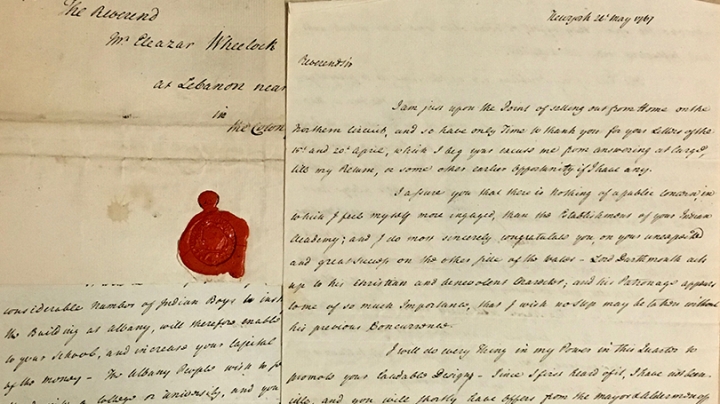 The Reverend
Mr Eleazar Wheelock
at Lebanon near
in
the Colony
considerable number of Indian Boys to
the Building at Albany, will therefore enable
to your School, and increase your Capital
of the money - The Albany People wish to
a College or University, and you
Newyork 22d May 1767
Reverend Sir
I am just upon the Point of setting out from Home on the
Northern Circuit, and so have only Time to thank you for your Letters of the
and 20th April, which I beg you excuse me from answering at large,
till my Return, or some other earlier Opportunity if I have any.
I assure you that there is nothing of a public Concern, in
which I feel myself more engaged, than the Establishment of your Indian
Academy; and I do most sincerely congratulate you, on your unexpected
and great success on the other side of the water - Lord Dartmouth acts
up to his Christian and benevolent Character; and his Patronage appears
to me of so much Importance, that I wish no step may be taken without
his previous Concurrence.
I will do every Thing in my Power in this Quarter to
promote your laudable Designs - Since I first heard of it, I have not been
idle, and you will shortly have offers from the mayor & Aldermen of